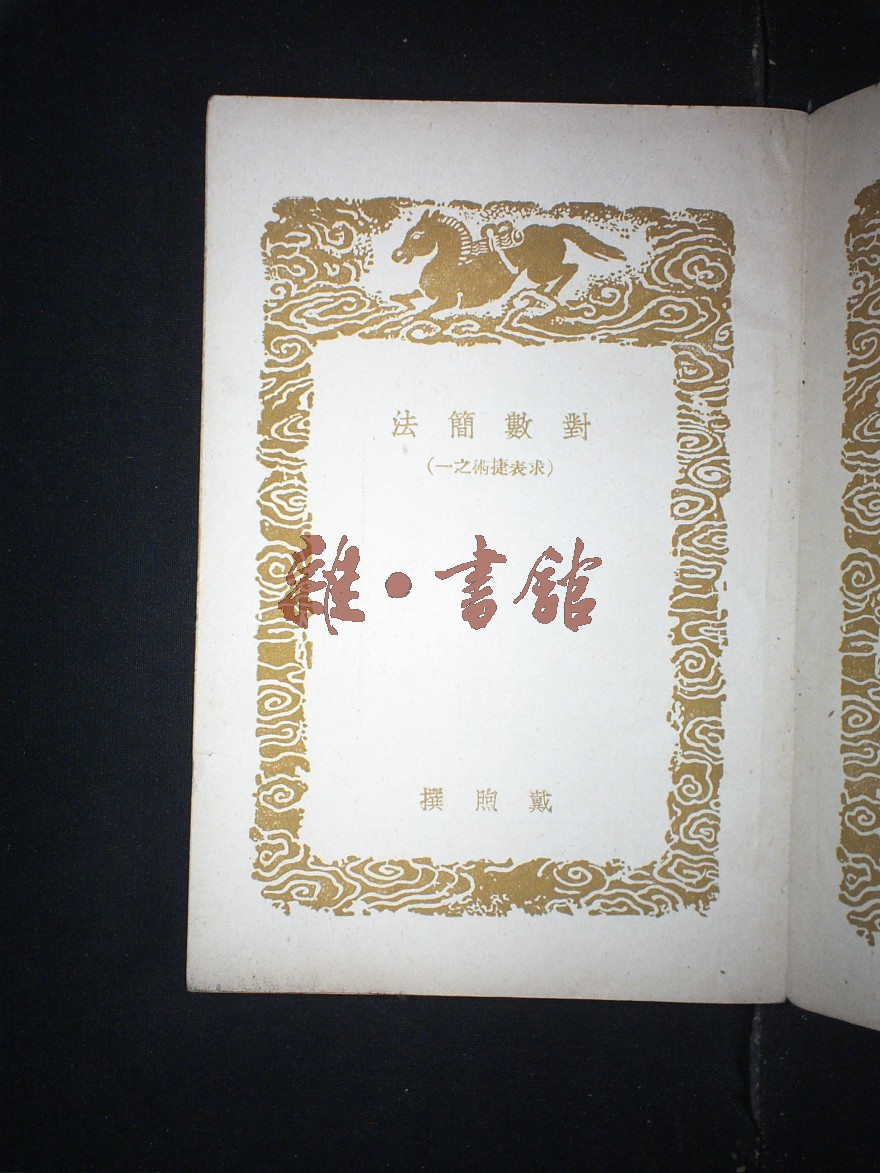 對數簡法
(求表捷術之一)
雜·書館
戴煦撰